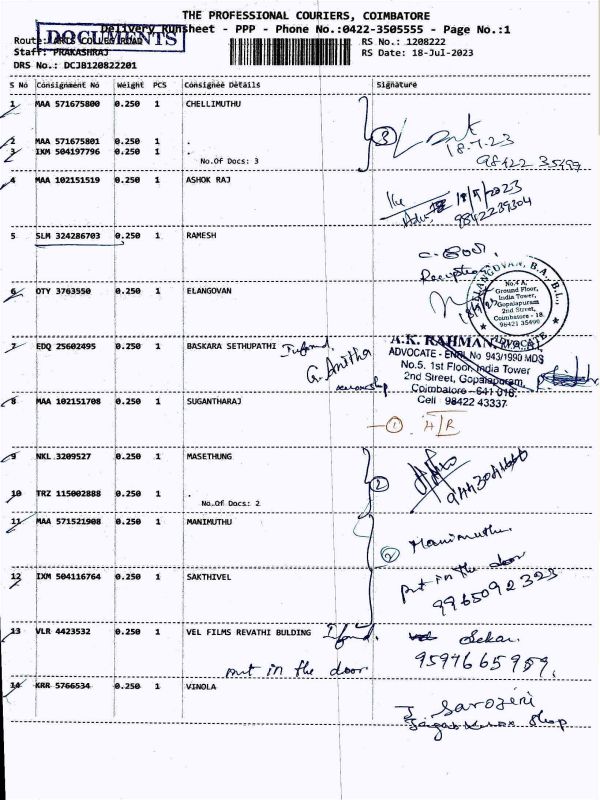 THE PROFESSIONAL COURIERS, COIMBATORE
Delivery Runsheet - PPP - Phone No.:0422-3505555 - Page No.:1
DOCUMENTS
Route: ARTS COLLEG ROAD
RS No.: 1208222
Staff: PRAKASHRAJ
RS Date: 18-Jul-2023
DRS No.: DCJB120822201
S No Consignment No Weight PCS Consignee Details Signature
1 MAA 571675800 0.250 1 CHELLIMUTHU
2 MAA 571675801 0.250 1 .
3 IXM 504197796 0.250 1 .
No.Of Docs: 3
3
18.7.23
98422 35499
4 MAA 102151519 0.250 1 ASHOK RAJ
9842239304
5 SLM 324286703 0.250 1 RAMESH
Reception
6 OTY 3763550 0.250 1 ELANGOVAN
ELANGOVAN, B.A., B.L.,
No.4 A,
Ground Floor,
India Tower,
Gopalapuram
2nd Street,
Coimbatore - 18.
98421 35499
ADVOCATE
7 EDQ 25602495 0.250 1 BASKARA SETHUPATHI
G. Anitha
A.K. RAHMAN,
ADVOCATE - ENRL No 943/1990 MDS
No.5. 1st Floor, India Tower
2nd Street, Gopalapuram,
Coimbatore - 641 018.
Cell : 98422 43337
8 MAA 102151708 0.250 1 SUGANTHARAJ
1 H/R
9 NKL 3209527 0.250 1 MASETHUNG
10 TRZ 115002888 0.250 1 .
No.Of Docs: 2
2
11 MAA 571521908 0.250 1 MANIMUTHU
2 Manimuthu.
12 IXM 504116764 0.250 1 SAKTHIVEL
put in the door
9965092323
13 VLR 4423532 0.250 1 VEL FILMS REVATHI BULDING
Sekar.
put in the door
14 KRR 5766534 0.250 1 VINOLA
J. Sarojini
shop